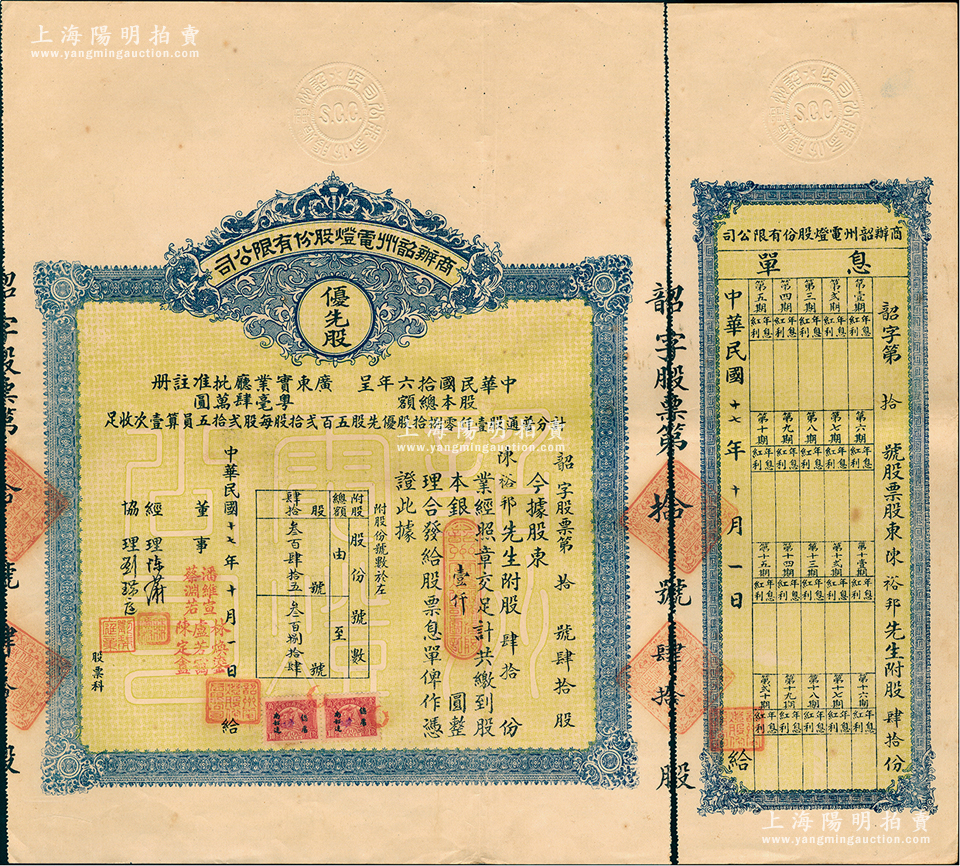 上海陽明拍賣
www.yangmingauction.com
S.C.C.
S.C.C.
商辦韶州電燈股份有限公司
優先股
中華民國拾六年呈 廣東實業廳批准註册
股本總額 粵毫肆萬圓
計分普通股壹千零捌拾股優先股五百弍拾股每股弍拾五員算壹次收足
韶字股票第 拾 號肆拾股
今據股東
陳裕邦先生附股 肆拾 份
業經照章交足計共繳到股
本銀 壹仟 圓整
理合發給股票息單俾作憑
證此據
附股份號數於左
附股總額
股份號數
由 號 至 號
肆拾 股
叁百肆拾五
叁百捌拾肆
中華民國十七年十月一日 給
董事
潘維宣
蔡淵若
林煥姿
盧芳
陳定盦
經理
協理
股票科
韶字股票第 拾 號肆拾股
韶字股票第 拾 號 肆拾 股
商辦韶州電燈股份有限公司
息單
韶字第 拾 號股票股東 陳裕邦 先生附股 肆拾 份
第壹期 年息 紅利
第弍期 年息 紅利
第三期 年息 紅利
第四期 年息 紅利
第五期 年息 紅利
第六期 年息 紅利
第七期 年息 紅利
第八期 年息 紅利
第九期 年息 紅利
第十期 年息 紅利
第十壹期 年息 紅利
第十弍期 年息 紅利
第十三期 年息 紅利
第十四期 年息 紅利
第十五期 年息 紅利
第十六期 年息 紅利
第十七期 年息 紅利
第十八期 年息 紅利
第十九期 年息 紅利
第弍十期 年息 紅利
中華民國十七年十月一日 給
上海陽明拍賣
www.yangmingauction.com
上海陽明拍賣
www.yangmingauction.com